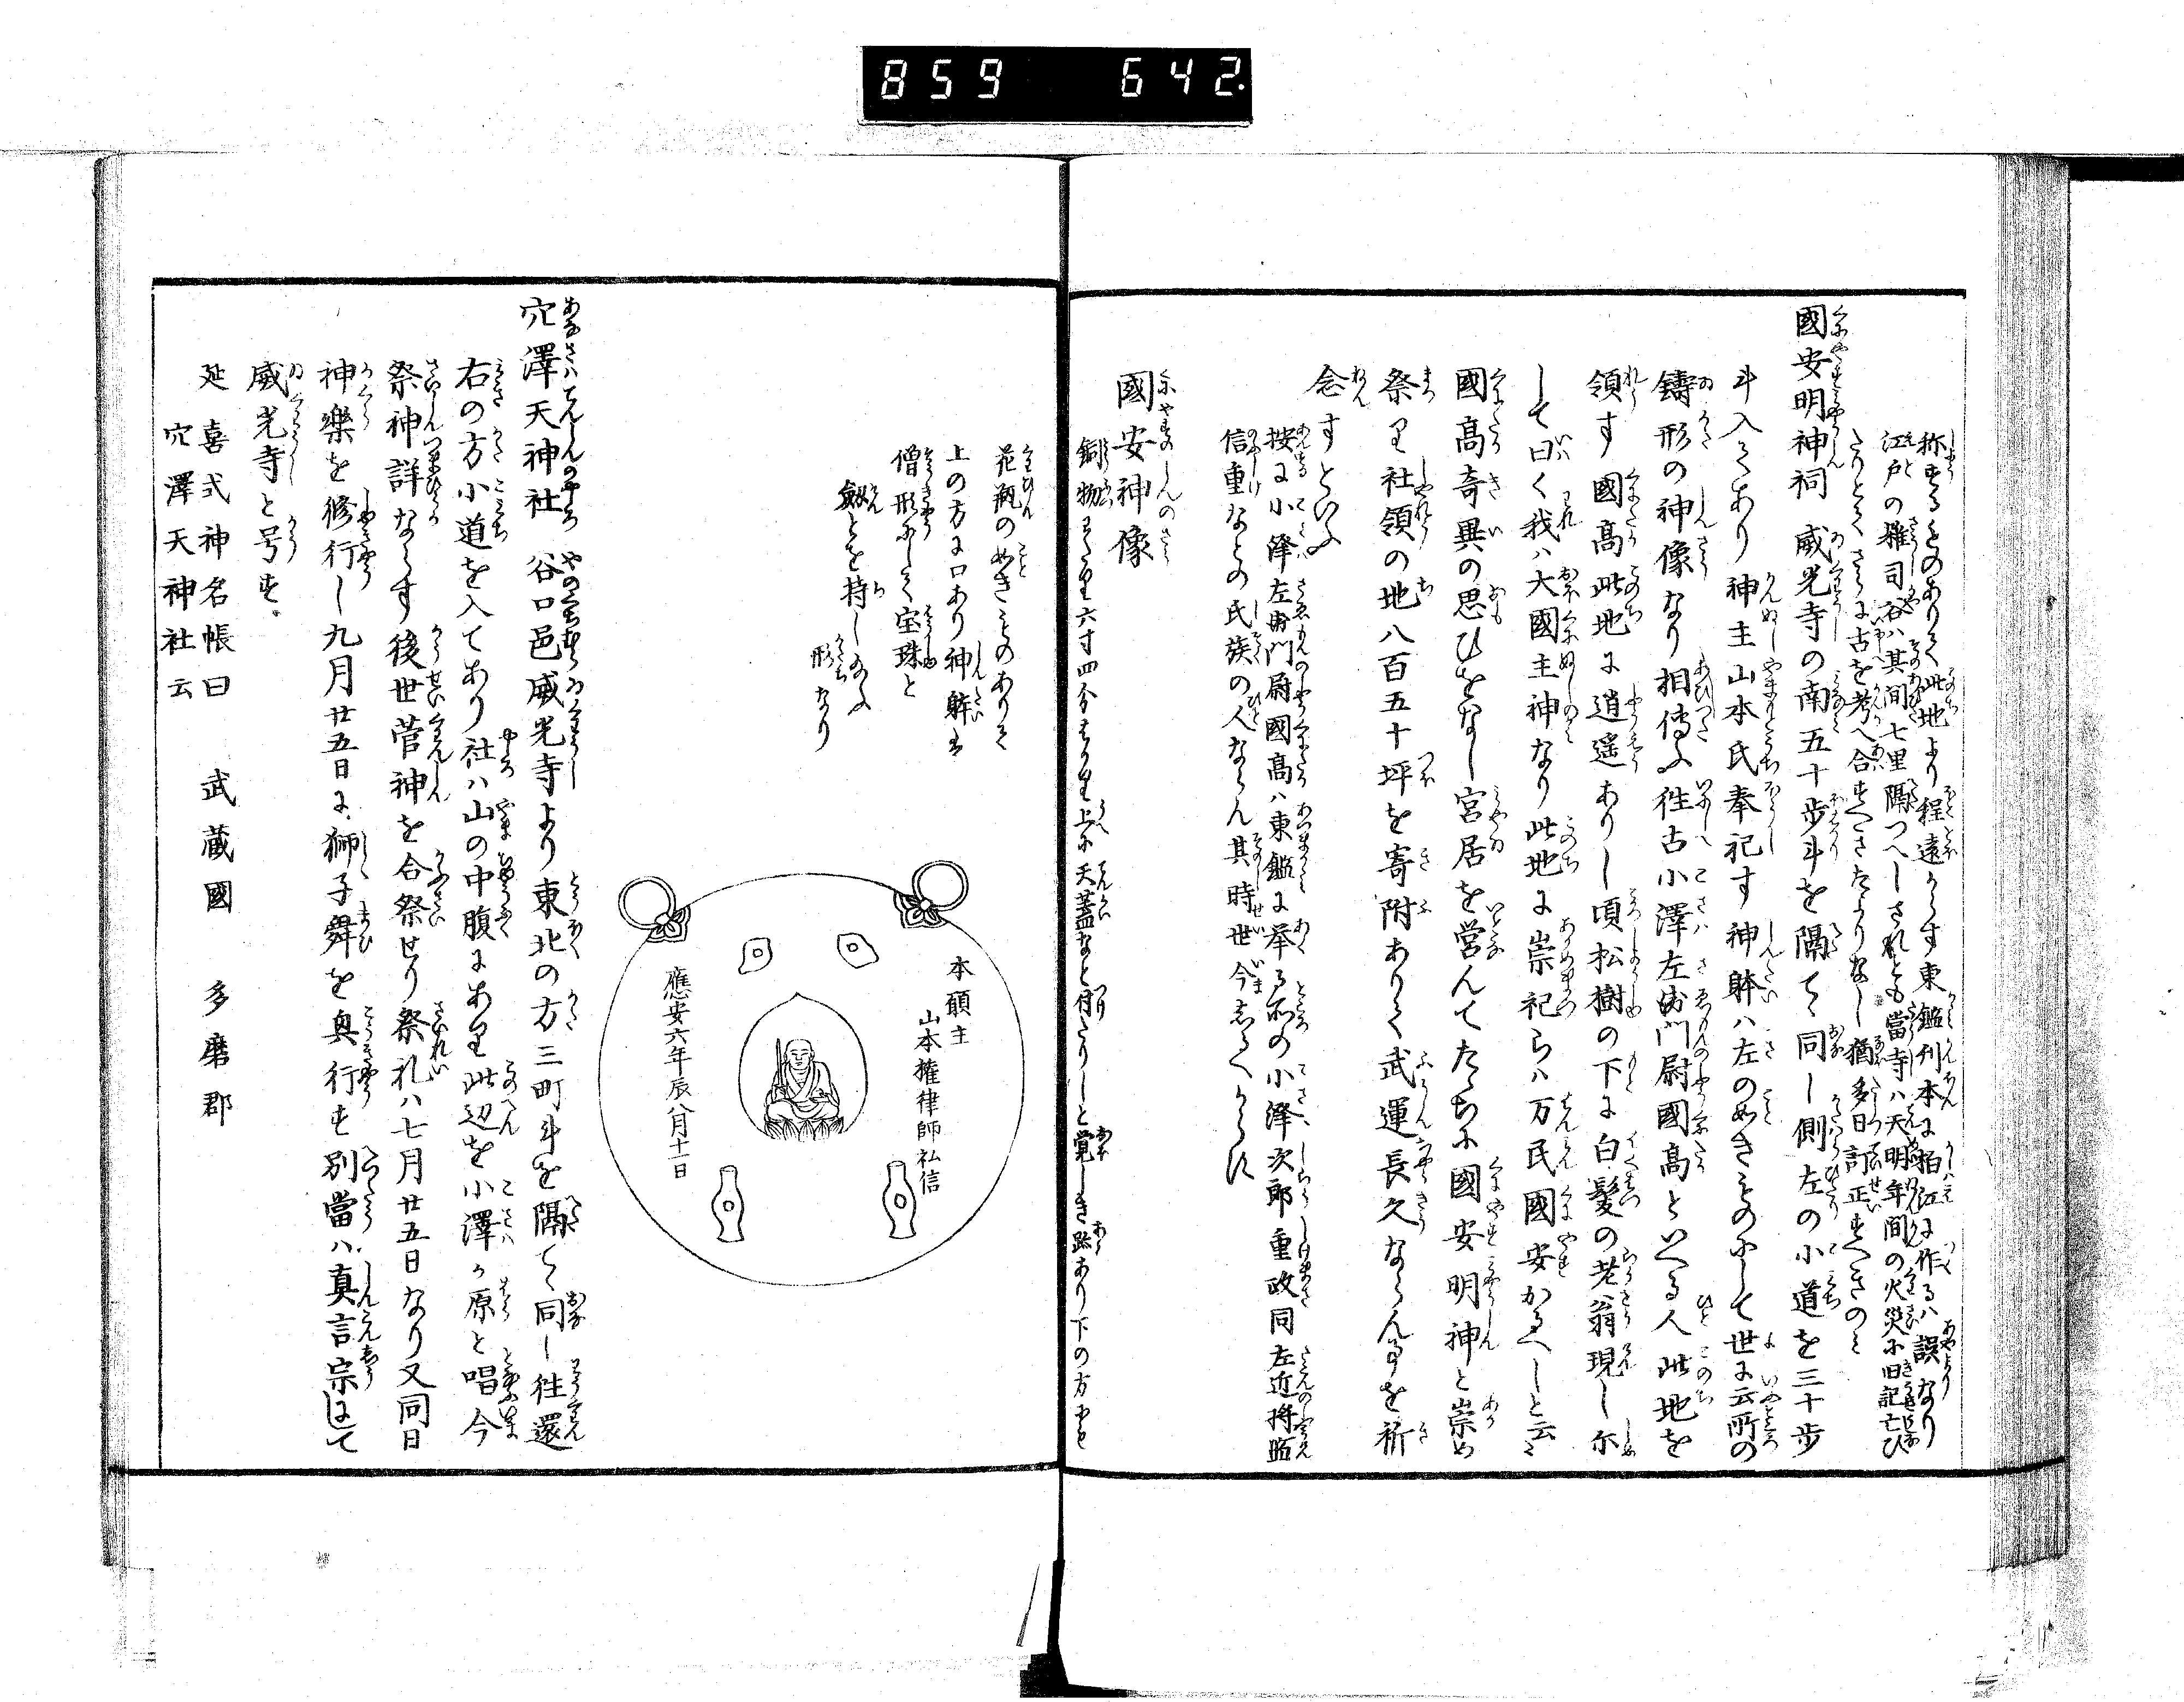 859 642.
称するものありて此地より程遠からす東鑑刊本に狛江に作るハ誤なり
江戸の雑司谷ハ其間七里隔つへしされとも當寺ハ天明年間の火災に旧記亡ひ
たりとてさらに古を考へ合すへきたよりなし猶多日訂正すへきのミ
國安明神祠 威光寺の南五十歩斗を隔てゝ同し側左の小道を三十歩
斗入てあり神主山本氏奉祀す神躰ハ左のめきものにして世に云所の
鑄形の神像なり相傳ふ往古小澤左衛門尉國高といへる人此地を
領す國高此地に逍遥ありし頃松樹の下に白髪の老翁現し示
して曰く我ハ大國主神なり此地に崇祀らハ万民國安かるへしと云々
國高奇異の思ひをなし宮居を営んてたゝちに國安明神と崇め
祭り社領の地八百五十坪を寄附ありて武運長久ならん事を祈
念すといふ
按に小澤左衛門尉國高ハ東鑑に挙る所の小澤次郎重政同左近将監
信重なとの氏族の人ならん其時世今しるへからす
國安神像
銅物にて径り六寸四分はかり上に天蓋なと付たりしと覚しき跡あり下の方にも
花瓶のめきものありて
上の方に口あり神躰は
僧形にして宝珠と
劔とを持しめふ
形なり
本願主
山本権律師弘信
應安六年辰八月十一日
穴澤天神社 谷口邑威光寺より東北の方三町斗を隔てゝ同し往還
右の方小道を入てあり社ハ山の中腹にあり此辺を小澤か原と唱今
祭神詳ならす後世菅神を合祭せり祭礼ハ七月廿五日なり又同日
神樂を修行し九月廿五日に獅子舞を興行す別當ハ真言宗にして
威光寺と号す
延喜式神名帳曰 武蔵國 多磨郡
穴澤天神社云